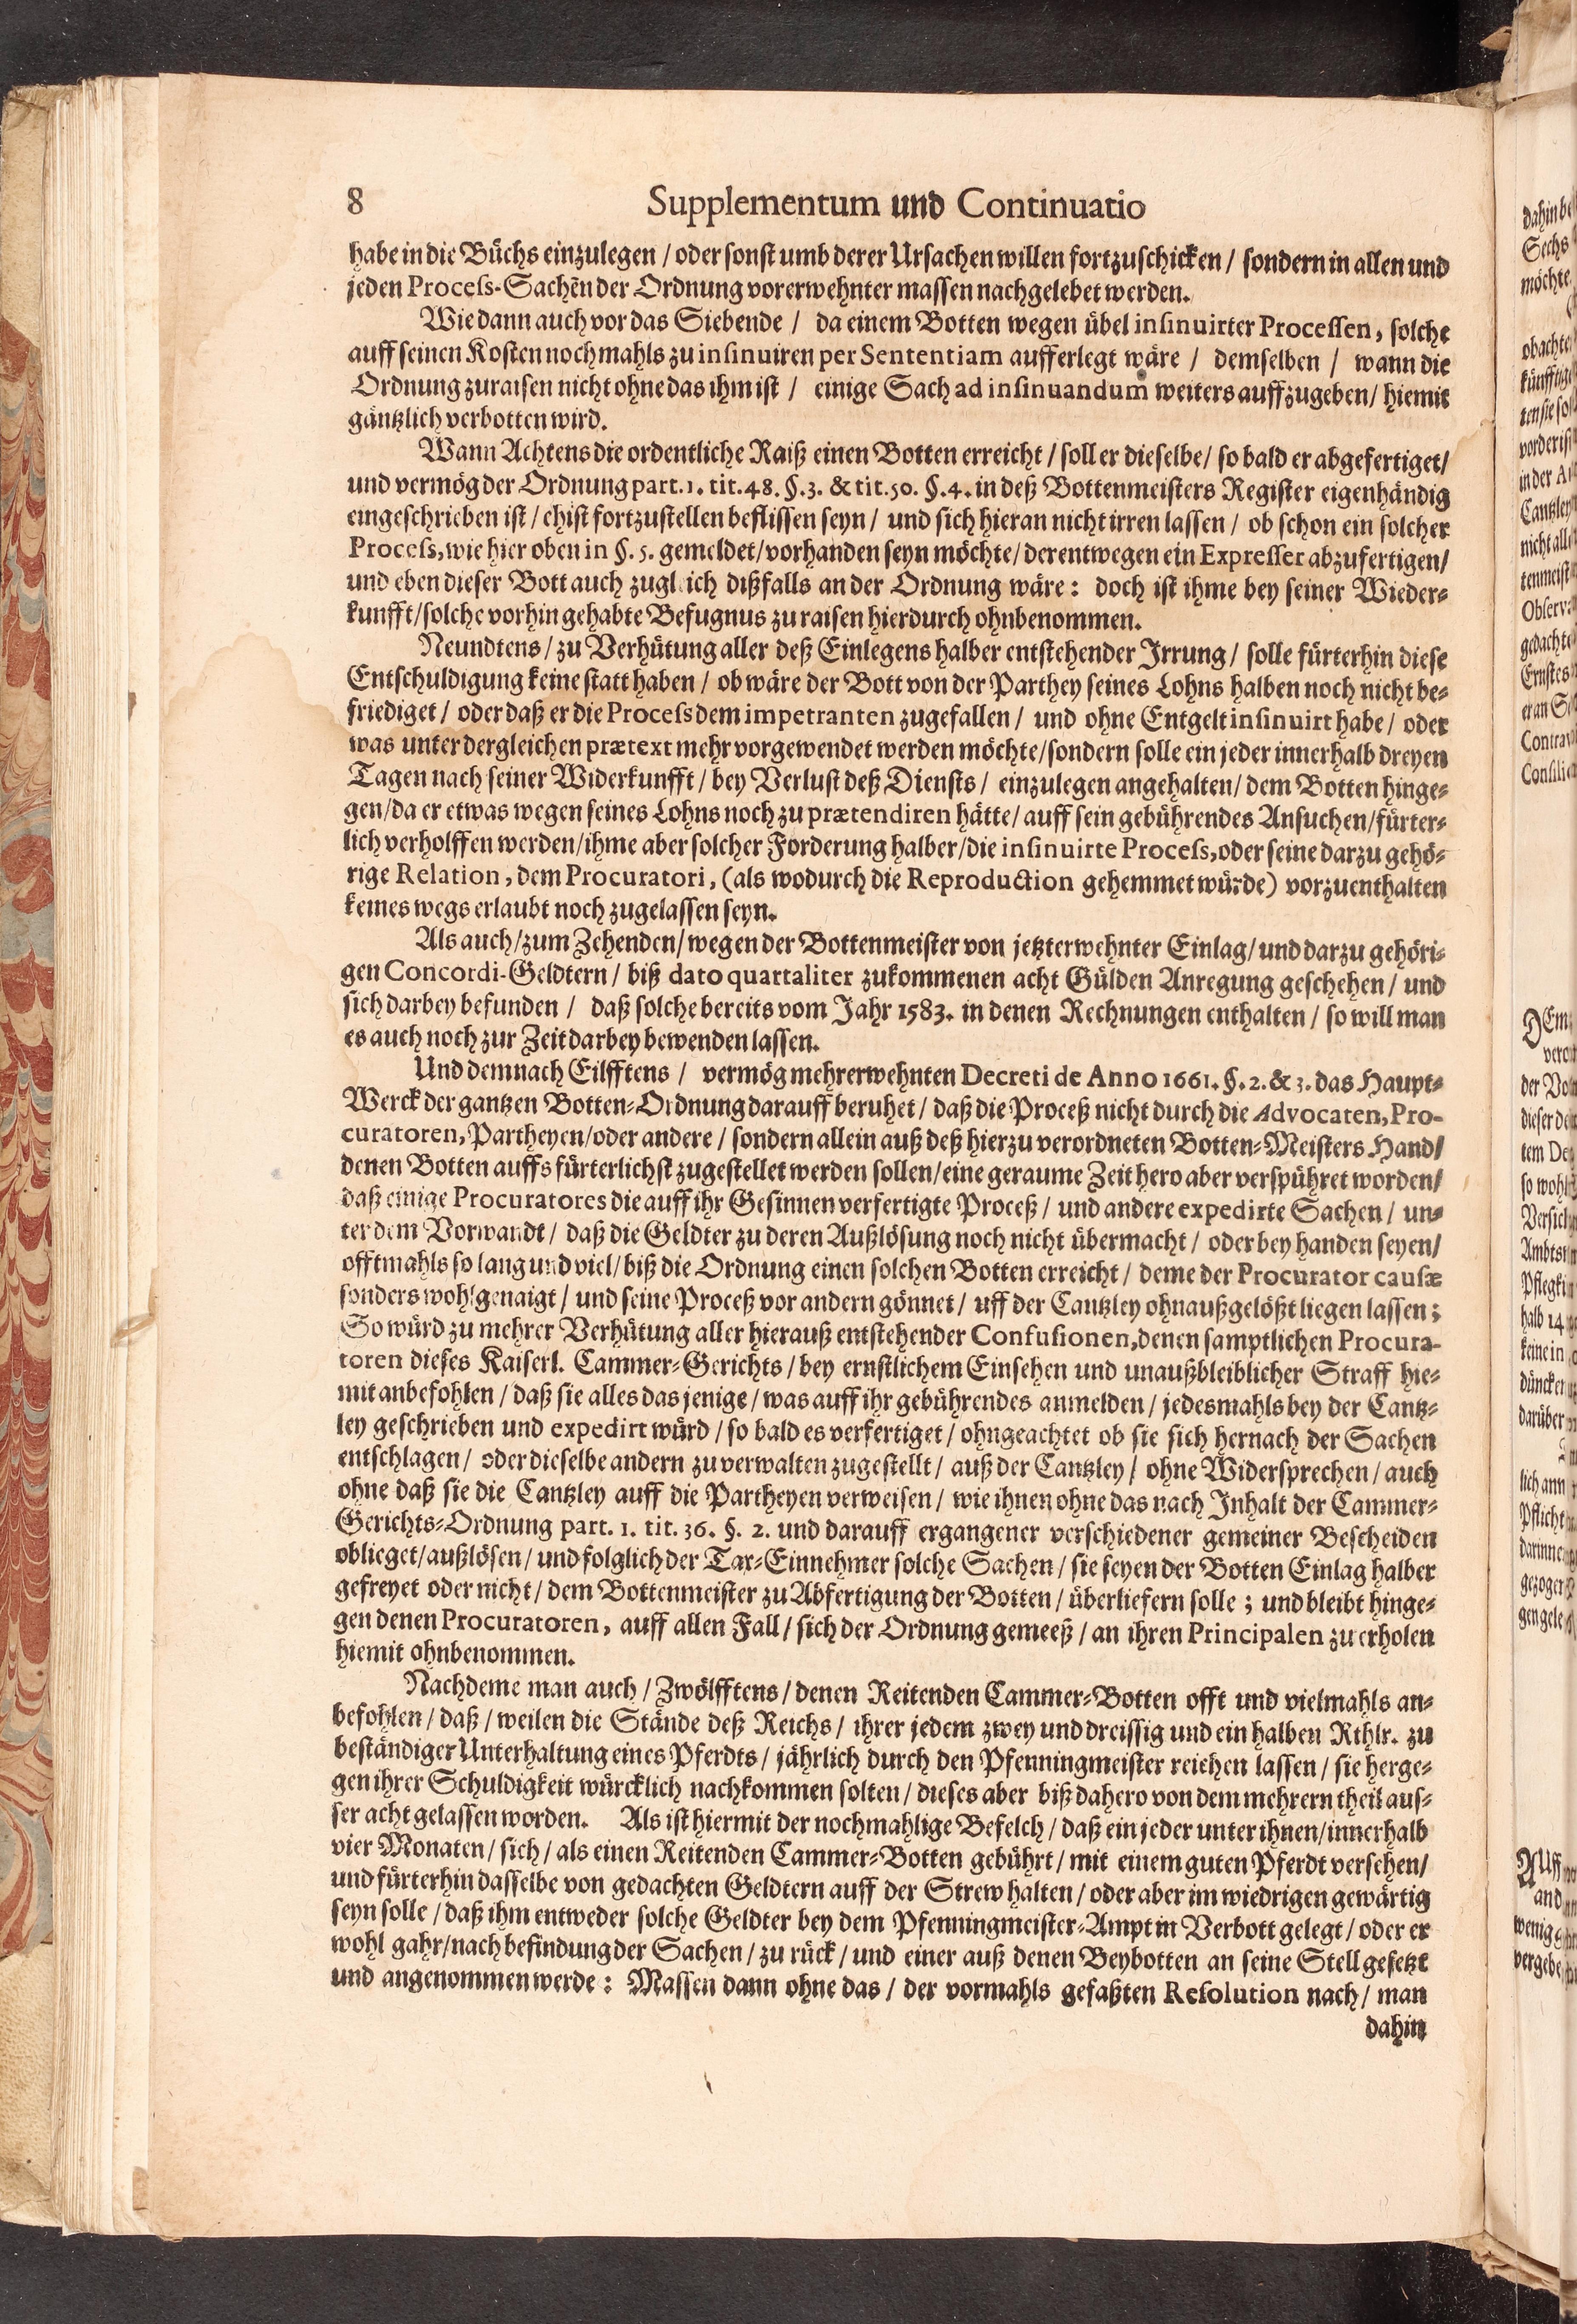 8 Supplementum und Continuatio
habe in die Büchs einzulegen / oder sonst umb derer Ursachen willen fortzuschicken / sondern in allen und
jeden Process-Sachẽn der Ordnung vorerwehnter massen nachgelebet werden.
Wie dann auch vor das Siebende / da einem Botten wegen übel insinuirter Processen, solche
auff seinen Kosten nochmahls zu insinuiren per Sententiam aufferlegt wäre / demselben / wann die
Ordnung zuraisen nicht ohne das ihm ist / einige Sach ad insinuandum weiters auffzugeben / hiemit
gäntzlich verbotten wird.
Wann Achtens die ordentliche Raiß einen Botten erreicht / soll er dieselbe / so bald er abgefertiget /
und vermög der Ordnung part. 1. tit. 48. §. 3. & tit. 50. §. 4. in deß Bottenmeisters Register eigenhändig
eingeschrieben ist / ehist fortzustellen beflissen seyn / und sich hieran nicht irren lassen / ob schon ein solcher
Process, wie hier oben in §. 5. gemeldet / vorhanden seyn möchte / derentwegen ein Expresser abzufertigen /
und eben dieser Bott auch zugleich dißfalls an der Ordnung wäre: doch ist ihme bey seiner Wieder-
kunfft / solche vorhin gehabte Befugnus zu raisen hierdurch ohnbenommen.
Neundtens / zu Verhütung aller deß Einlegens halber entstehender Irrung / solle fürterhin diese
Entschuldigung keine statt haben / ob wäre der Bott von der Parthey seines Lohns halben noch nicht be-
friediget / oder daß er die Process dem impetranten zugefallen / und ohne Entgelt insinuirt habe / oder
was unter dergleichen prætext mehr vorgewendet werden möchte / sondern solle ein jeder innerhalb dreyen
Tagen nach seiner Widerkunfft / bey Verlust deß Diensts / einzulegen angehalten / dem Botten hinge-
gen / da er etwas wegen seines Lohns noch zu prætendiren hätte / auff sein gebührendes Ansuchen / fürter-
lich verholffen werden / ihme aber solcher Forderung halber / die insinuirte Process, oder seine darzu gehö-
rige Relation, dem Procuratori, (als wodurch die Reproduction gehemmet würde) vorzuenthalten
keines wegs erlaubt noch zugelassen seyn.
Als auch / zum Zehenden / wegen der Bottenmeister von jetzterwehnter Einlag / und darzu gehöri-
gen Concordi-Geldtern / biß dato quartaliter zukommenen acht Gülden Anregung geschehen / und
sich darbey befunden / daß solche bereits vom Jahr 1583. in denen Rechnungen enthalten / so will man
es auch noch zur Zeit darbey bewenden lassen.
Und demnach Eilfftens / vermög mehrerwehnten Decreti de Anno 1661. §. 2. & 3. das Haupt-
Werck der gantzen Botten-Ordnung darauff beruhet / daß die Proceß nicht durch die Advocaten, Pro-
curatoren, Partheyen / oder andere / sondern allein auß deß hierzu verordneten Botten-Meisters Hand /
denen Botten auffs fürterlichst zugestellet werden sollen / eine geraume Zeit hero aber verspühret worden /
daß einige Procuratores die auff ihr Gesinnen verfertigte Proceß / und andere expedirte Sachen / un-
ter dem Vorwandt / daß die Geldter zu deren Außlösung noch nicht übermacht / oder bey handen seyen /
offtmahls so lang und viel / biß die Ordnung einen solchen Botten erreicht / deme der Procurator causæ
sonders wohlgenaigt / und seine Proceß vor andern gönnet / uff der Cantzley ohnaußgelößt liegen lassen;
So würd zu mehrer Verhütung aller hierauß entstehender Confusionen, denen samptlichen Procura-
toren dieses Kaiserl. Cammer-Gerichts / bey ernstlichem Einsehen und unaußbleiblicher Straff hie-
mit anbefohlen / daß sie alles das jenige / was auff ihr gebührendes anmelden / jedesmahls bey der Cantz-
ley geschrieben und expedirt würd / so bald es verfertiget / ohngeachtet ob sie sich hernach der Sachen
entschlagen / oder dieselbe andern zu verwalten zugestellt / auß der Cantzley / ohne Widersprechen / auch
ohne daß sie die Cantzley auff die Partheyen verweisen / wie ihnen ohne das nach Inhalt der Cammer-
Gerichts-Ordnung part. 1. tit. 36. §. 2. und darauff ergangener verschiedener gemeiner Bescheiden
oblieget / außlösen / und folglich der Tax-Einnehmer solche Sachen / sie seyen der Botten Einlag halber
gefreyet oder nicht / dem Bottenmeister zu Abfertigung der Botten / überliefern solle; und bleibt hinge-
gen denen Procuratoren, auff allen Fall / sich der Ordnung gemeeß / an ihren Principalen zu erholen
hiemit ohnbenommen.
Nachdeme man auch / Zwölfftens / denen Reitenden Cammer-Botten offt und vielmahls an-
befohlen / daß / weilen die Stände deß Reichs / ihrer jedem zwey und dreissig und ein halben Rthlr. zu
beständiger Unterhaltung eines Pferdts / jährlich durch den Pfenningmeister reichen lassen / sie herge-
gen ihrer Schuldigkeit würcklich nachkommen solten / dieses aber biß dahero von dem mehrern theil aus-
ser acht gelassen worden. Als ist hiermit der nochmahlige Befelch / daß ein jeder unter ihnen / innerhalb
vier Monaten / sich / als einen Reitenden Cammer-Botten gebührt / mit einem guten Pferdt versehen /
und fürterhin dasselbe von gedachten Geldtern auff der Strew halten / oder aber im wiedrigen gewärtig
seyn solle / daß ihm entweder solche Geldter bey dem Pfenningmeister-Ampt in Verbott gelegt / oder er
wohl gahr / nach befindung der Sachen / zu rück / und einer auß denen Beybotten an seine Stell gesetzt
und angenommen werde: Massen dann ohne das / der vormahls gefaßten Resolution nach / man
dahin